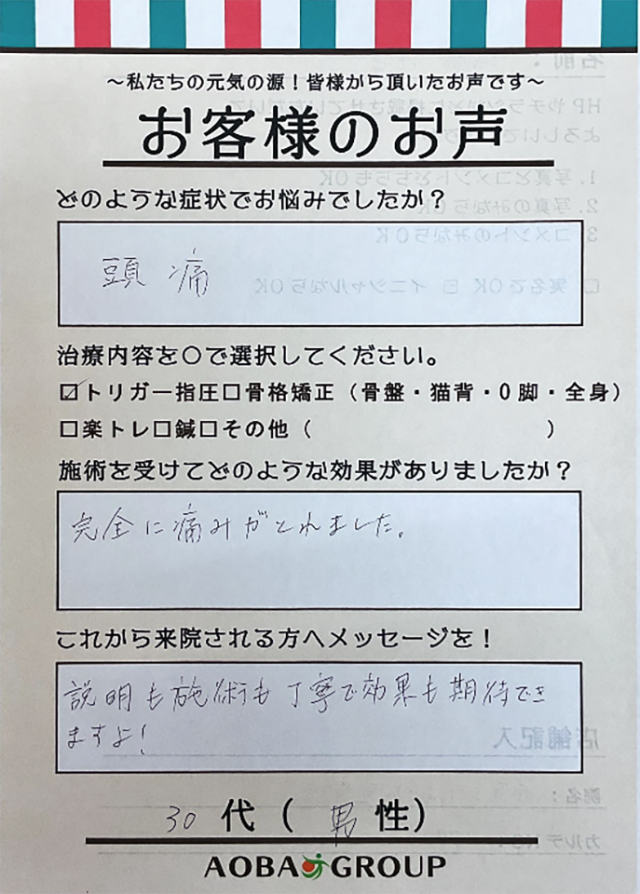 ～私たちの元気の源！皆様から頂いたお声です～
お客様のお声
どのような症状でお悩みでしたか？
頭痛
治療内容を○で選択してください。
☑トリガー指圧□骨格矯正（骨盤・猫背・O脚・全身）
□楽トレ□鍼□その他（　　　　　　　　　）
施術を受けてどのような効果がありましたか？
完全に痛みがとれました。
これから来院される方へメッセージを！
説明も施術も丁寧で効果も期待でき
ますよ！
30代（男性）
AOBA GROUP